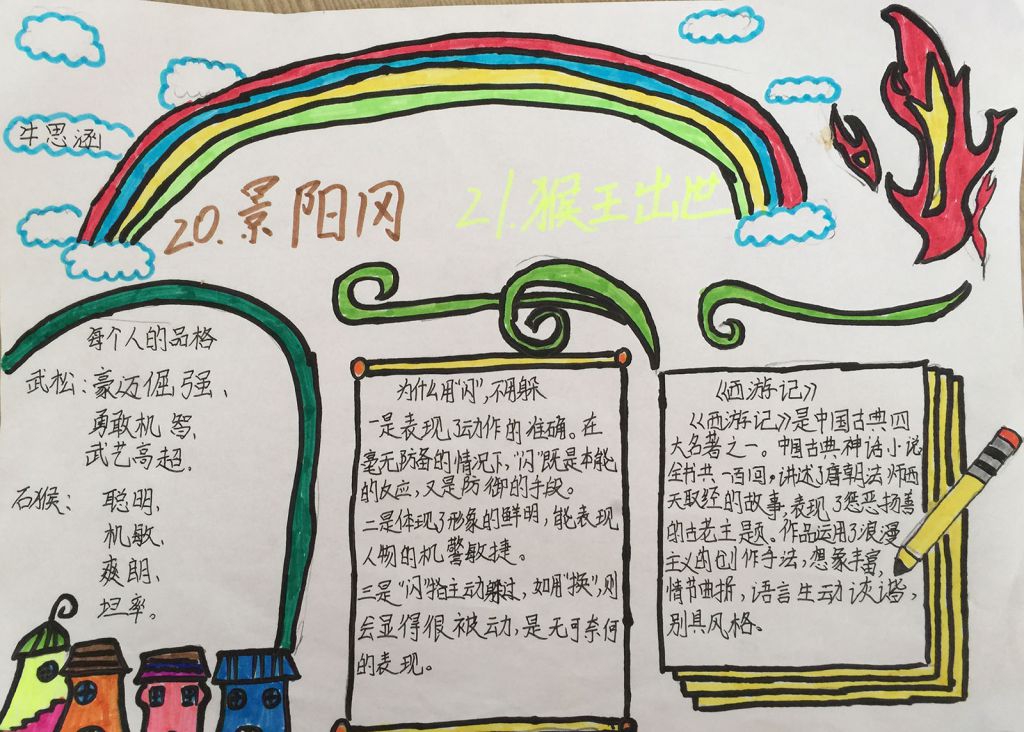 牛思涵
20.景阳冈
21.猴王出世
每个人的品格
武松:豪迈倔强、
勇敢机智、
武艺高超、
石猴: 聪明、
机敏、
爽朗、
坦率。
为什么用"闪",不用躲
一是表现了动作的准确。在
毫无防备的情况下,"闪"既是本能
的反应,又是防御的手段。
二是体现了形象的鲜明,能表现
人物的机警敏捷。
三是"闪"指主动躲过,如用"换",则
会显得很被动,是无可奈何
的表现。
《西游记》
《西游记》是中国古典四
大名著之一。中国古典神话小说
全书共一百回,讲述了唐朝法师西
天取经的故事,表现了惩恶扬善
的古老主题。作品运用了浪漫
主义的创作手法,想象丰富,
情节曲折,语言生动诙谐,
别具风格。